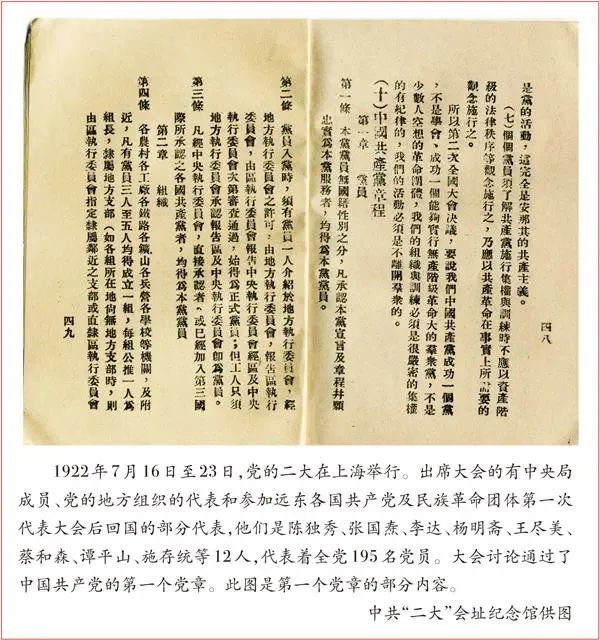 是黨的活動,這完全是安那其的共產主義。
(七)個個黨員須了解共產黨施行集權與訓練時不應以資產階
級的法律秩序等觀念施行之,乃應以共產革命在事實上所需要的
觀念施行之。
所以第二次全國大會決議,要說我們中國共產黨成功一個黨
,不是學會、成功一個能夠實行無產階級革命大的羣衆黨,不是
少數人空想的革命團體,我們的組織與訓練必須是很嚴密的集權
的有紀律的,我們的活動必須是不離開羣衆的。
(十)中國共產黨章程
第一章 黨員
第一條 本黨黨員無國籍性別之分,凡承認本黨宣言及章程幷願
忠實爲本黨服務者,均得爲本黨黨員。
四八
第二條 黨員入黨時,須有黨員一人介紹於地方執行委員會,經
地方執行委員會之許可,由地方執行委員會,報告區執行
委員會,由區執行委員會報告中央執行委員會經區及中央
執行委員會次第審查通過,始得爲正式黨員;但工人只須
地方執行委員會承認報告區及中央執行委員會即爲黨員。
第三條 凡經中央執行委員會,直接承認者,或已經加入第三國
際所承認之各國共產黨者,均得爲本黨黨員
第二章 組織
第四條 各農村各工廠各鐵路各鑛山各兵營各學校等機關,及附
近,凡有黨員三人至五人均得成立一組,每組公推一人爲
組長,隸屬地方支部(如各組所在地尙無地方支部時,則
由區執行委員會指定隸屬鄰近之支部或直隸區執行委員會
四九
1922年7月16日至23日,党的二大在上海举行。出席大会的有中央局
成员、党的地方组织的代表和参加远东各国共产党及民族革命团体第一次
代表大会后回国的部分代表,他们是陈独秀、张国焘、李达、杨明斋、王尽美、
蔡和森、谭平山、施存统等12人,代表着全党195名党员。大会讨论通过了
中国共产党的第一个党章。此图是第一个党章的部分内容。
中共“二大”会址纪念馆供图